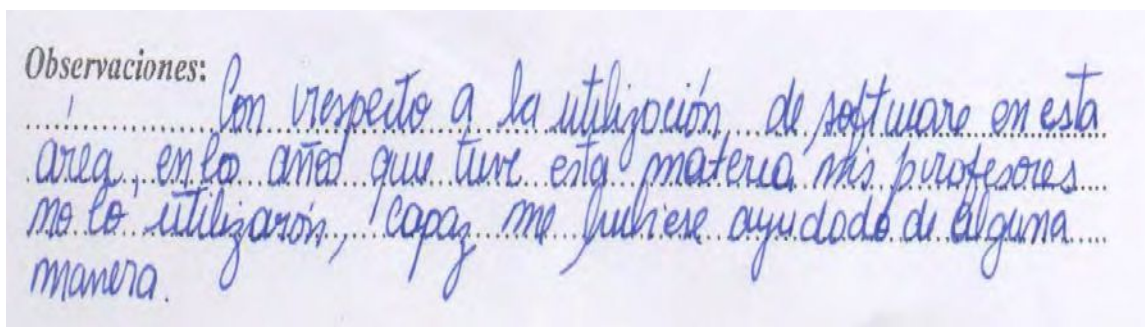 Observaciones: Con respecto a la utilización de software en esta
area, en los años que tuve esta materia mis profesores
no lo utilizarón, capaz me hubiese ayudado de alguna
manera.